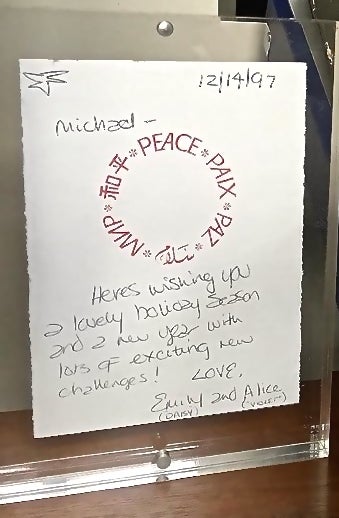 12/14/97
Michael –
PEACE * PAIX * PAZ * * МИР * 和平 *
Heres wishing you
a lovely holiday season
and a new year with
lots of exciting new
challenges!
LOVE,
Emily and Alice
(DAISY) (VIOLET)